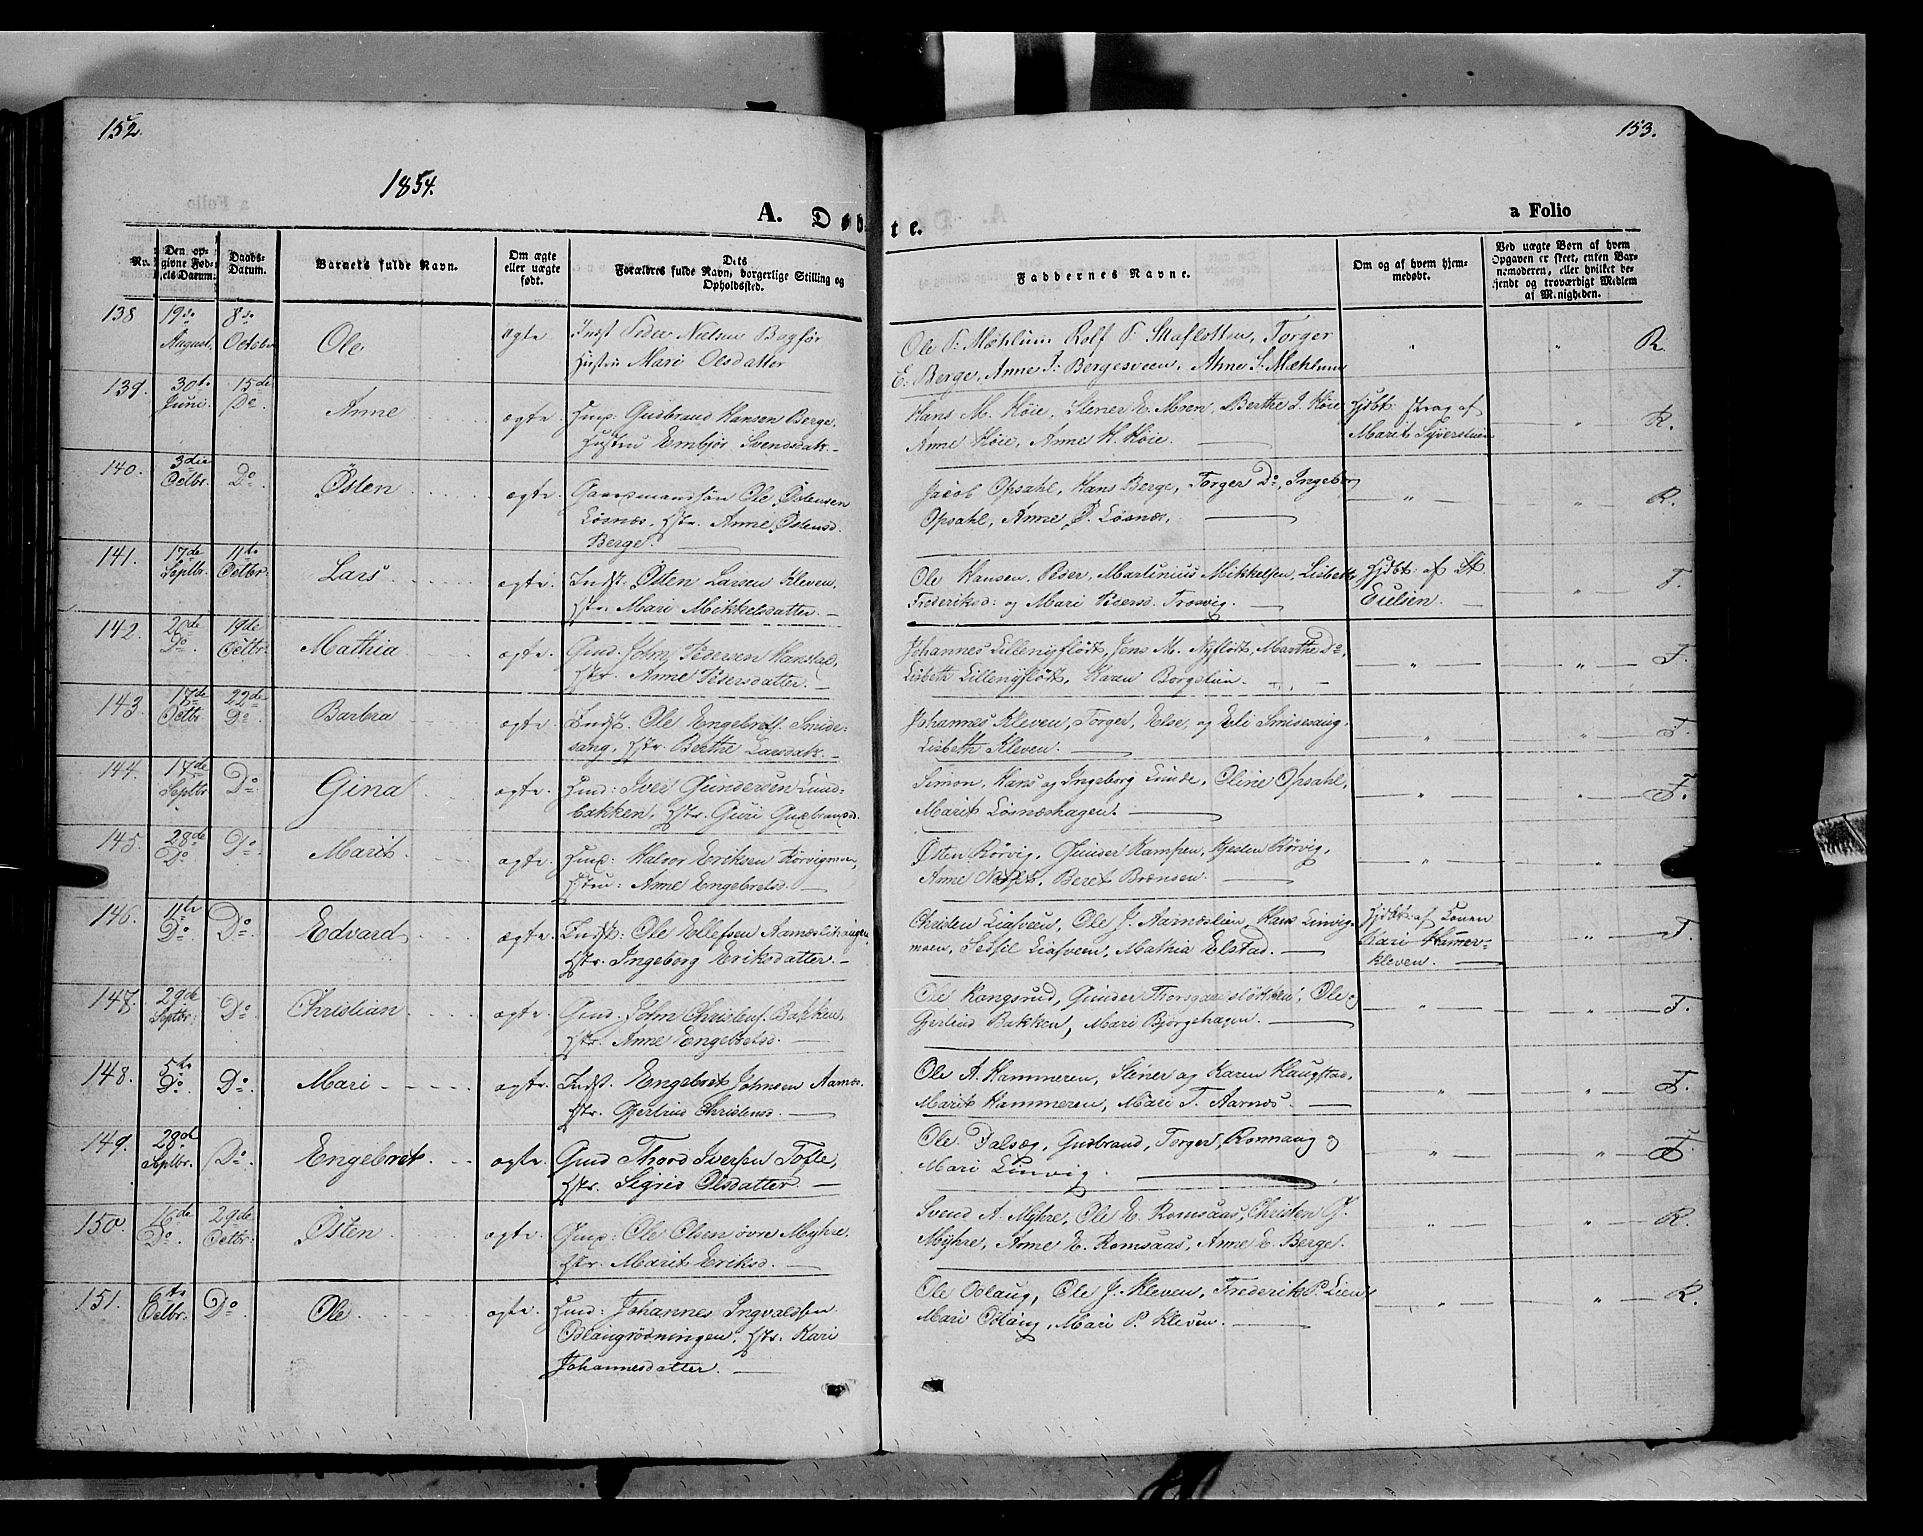 152.
153.
1854.
A. Døbte.
a Folio
No.
Den opgivne Fødsels Datum.
Daabs-Datum.
Barnets fulde Navn.
Om ægte eller uægte født.
Dets Forældres fulde Navn, borgerlige Stilling og Opholdssted.
Faddernes Navne.
Om og af hvem hjemmedøbt.
Ved uægte Børn af hvem Opgaven er skeet, enten Barnemoderen, eller hvilket bekjendt og troværdigt Medlem af Menigheden.
138 19de August. 8de October Ole ægte Inst Peder Nielsen Bagfør
Hustru Mari Olsdatter
Ole P. Mæhlum Rolf P. Staflotten, Torger
E. Berge, Anne J. Bergesveen, Anne S. Mæhlum " " R.
139. 30te Juni. 15de Do. Anne ægte Husm. Gudbrand Hansen Berge,
Hustru Embjør Svendsdatr.
Hans M. Høie, Stener E. Moen, Berthe J. Høie
Anne Høie, Anne H. Høie. Hjdbt: strax af
Marit Syverstuen " R.
140. 3die Octbr. Do Østen ægte Gaardmandsøn Ole Østensen
Løsnæs. Hstr. Anne Østensd.
Berge.
Jacob Opsahl, Hans Berge, Torger Do, Ingeborg
Opsahl, Anne Ø. Løsnæs. " " R.
141. 17de Septbr. 11te Octbr. Lars ægte Indst. Østen Larsen Kleven,
Hstr: Mari Mikkelsdatter.
Ole Hansen, Peder, Martinius Mikkelsen, Lisbeth
Frederiksd: og Mari Pedersd. Trosvig. Hjdbt: af
" T.
142. 20de Do 19de Octbr. Mathia ægte Gmd. John Pedersen Kanstad,
Hstr. Anne Pedersdatter.
Johannes Lillenyflødt, Jens M. Nyflødt, Marthe Do,
Lisbeth Lillenyflødt, Karen Borgslien. " " T.
143. 17de Octbr 22de Do Barbra ægte Indst. Ole Engebretf. Smide-
sang, Hstr. Berthe Larsdatr.
Johannes Kleven, Torger, Else, og Eli Smidesang,
Lisbeth Kleven. " " T.
144. 17de Septbr Do Gina ægte Husm: Iver Gundersen Lund-
bakken, Hstr. Guri Gudbrandsd.
Simon, Hans og Ingeborg Lunde, Oline Opsahl,
Marit Løsnæshagen. " " T.
145. 28de Do. Do. Marit ægte Husm: Halvor Eriksen Rørvigmoen,
Hstru: Anne Engebretsd.
Østen Rørvig, Gunder Kampen, Kjesten Rørvig,
Anne Beret Brænden. " " T.
146. 11te Do. Do. Edvard ægte Indst: Ole Ellefsen Aarnæslihaugen,
Hstr. Ingeborg Eriksdatter.
Christen Liasveen, Ole J. Aarnæslien, Hans Linvig-
moen, Sessel Liasveen, Mathia Elstad. Hjdbt: af Konen
Kari Hamer-
kleven. T.
147. 29de Septbr. Do. Christian ægte Gmd. John Christensf. Bakken,
Hstr. Anne Engebretsd.
Ole Kongsrud, Gunder Ole og
Gjertrud Bakken, Mari Bjørgehagen. " " T.
148. 5te Do. Do Mari ægte Indst. Engebret Johnsen Aarnæs.
Hstr. Gjertrud Christensd.
Ole A. Hammeren, Stener og Karen Haugstad,
Marit Hammeren, Mari T. Aarnæs. " " T.
149. 28de Septbr. Do. Engebret ægte Gmd Thord Iversen Tofte,
Hstr. Sigrid Olsdatter.
Ole Dalsæg, Gudbrand, Torger, Ronnaug og
Mari Linvig. " " T.
150. 16de Do. 29de Octbr. Østen ægte Husm: Ole Olsen øvre Myhre.
Hstr. Marit Eriksd.
Svend A. Myhre, Ole E. Romsaas, Christen G.
Myhre, Anne E. Romsaas, Anne E. Berge. " " R.
151. 6te Octbr. Do Ole ægte Husm: Johannes Ingvaldsen
Odlaugrødningen. Hstr. Kari
Johannesdatter.
Ole Odlaug, Ole J. Kleven, Frederik P. Lien
Mari Odlaug, Mari P. Kleven. " " R.